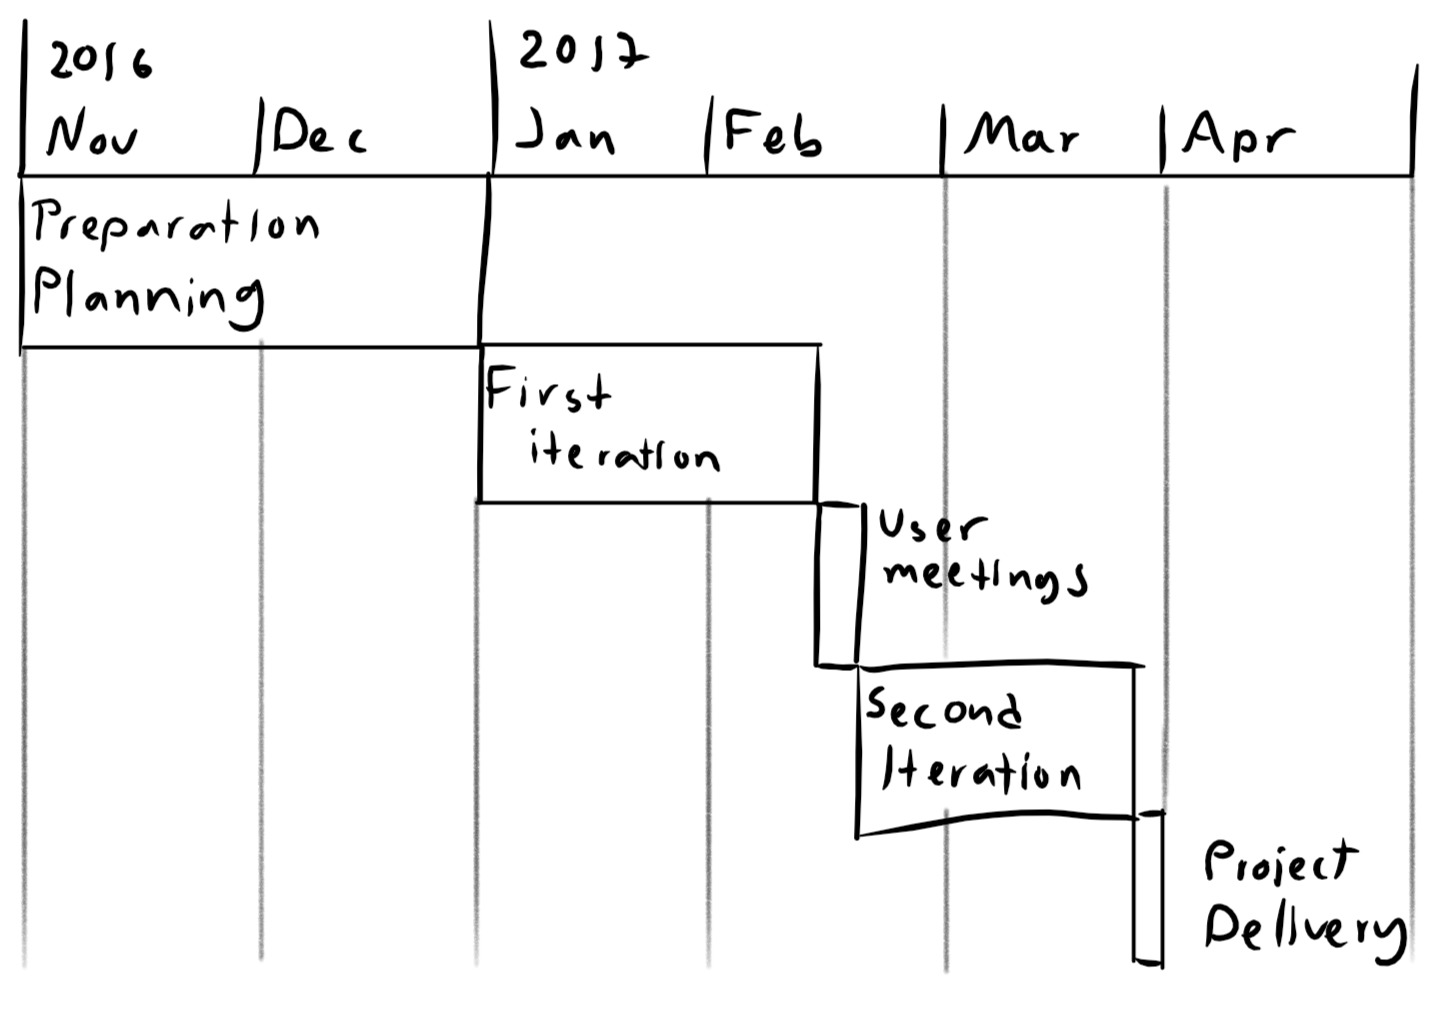 2016
2017
Nov
Dec
Jan
Feb
Mar
Apr
Preparation
Planning
First
iteration
User
meetings
Second
Iteration
Project
Delivery